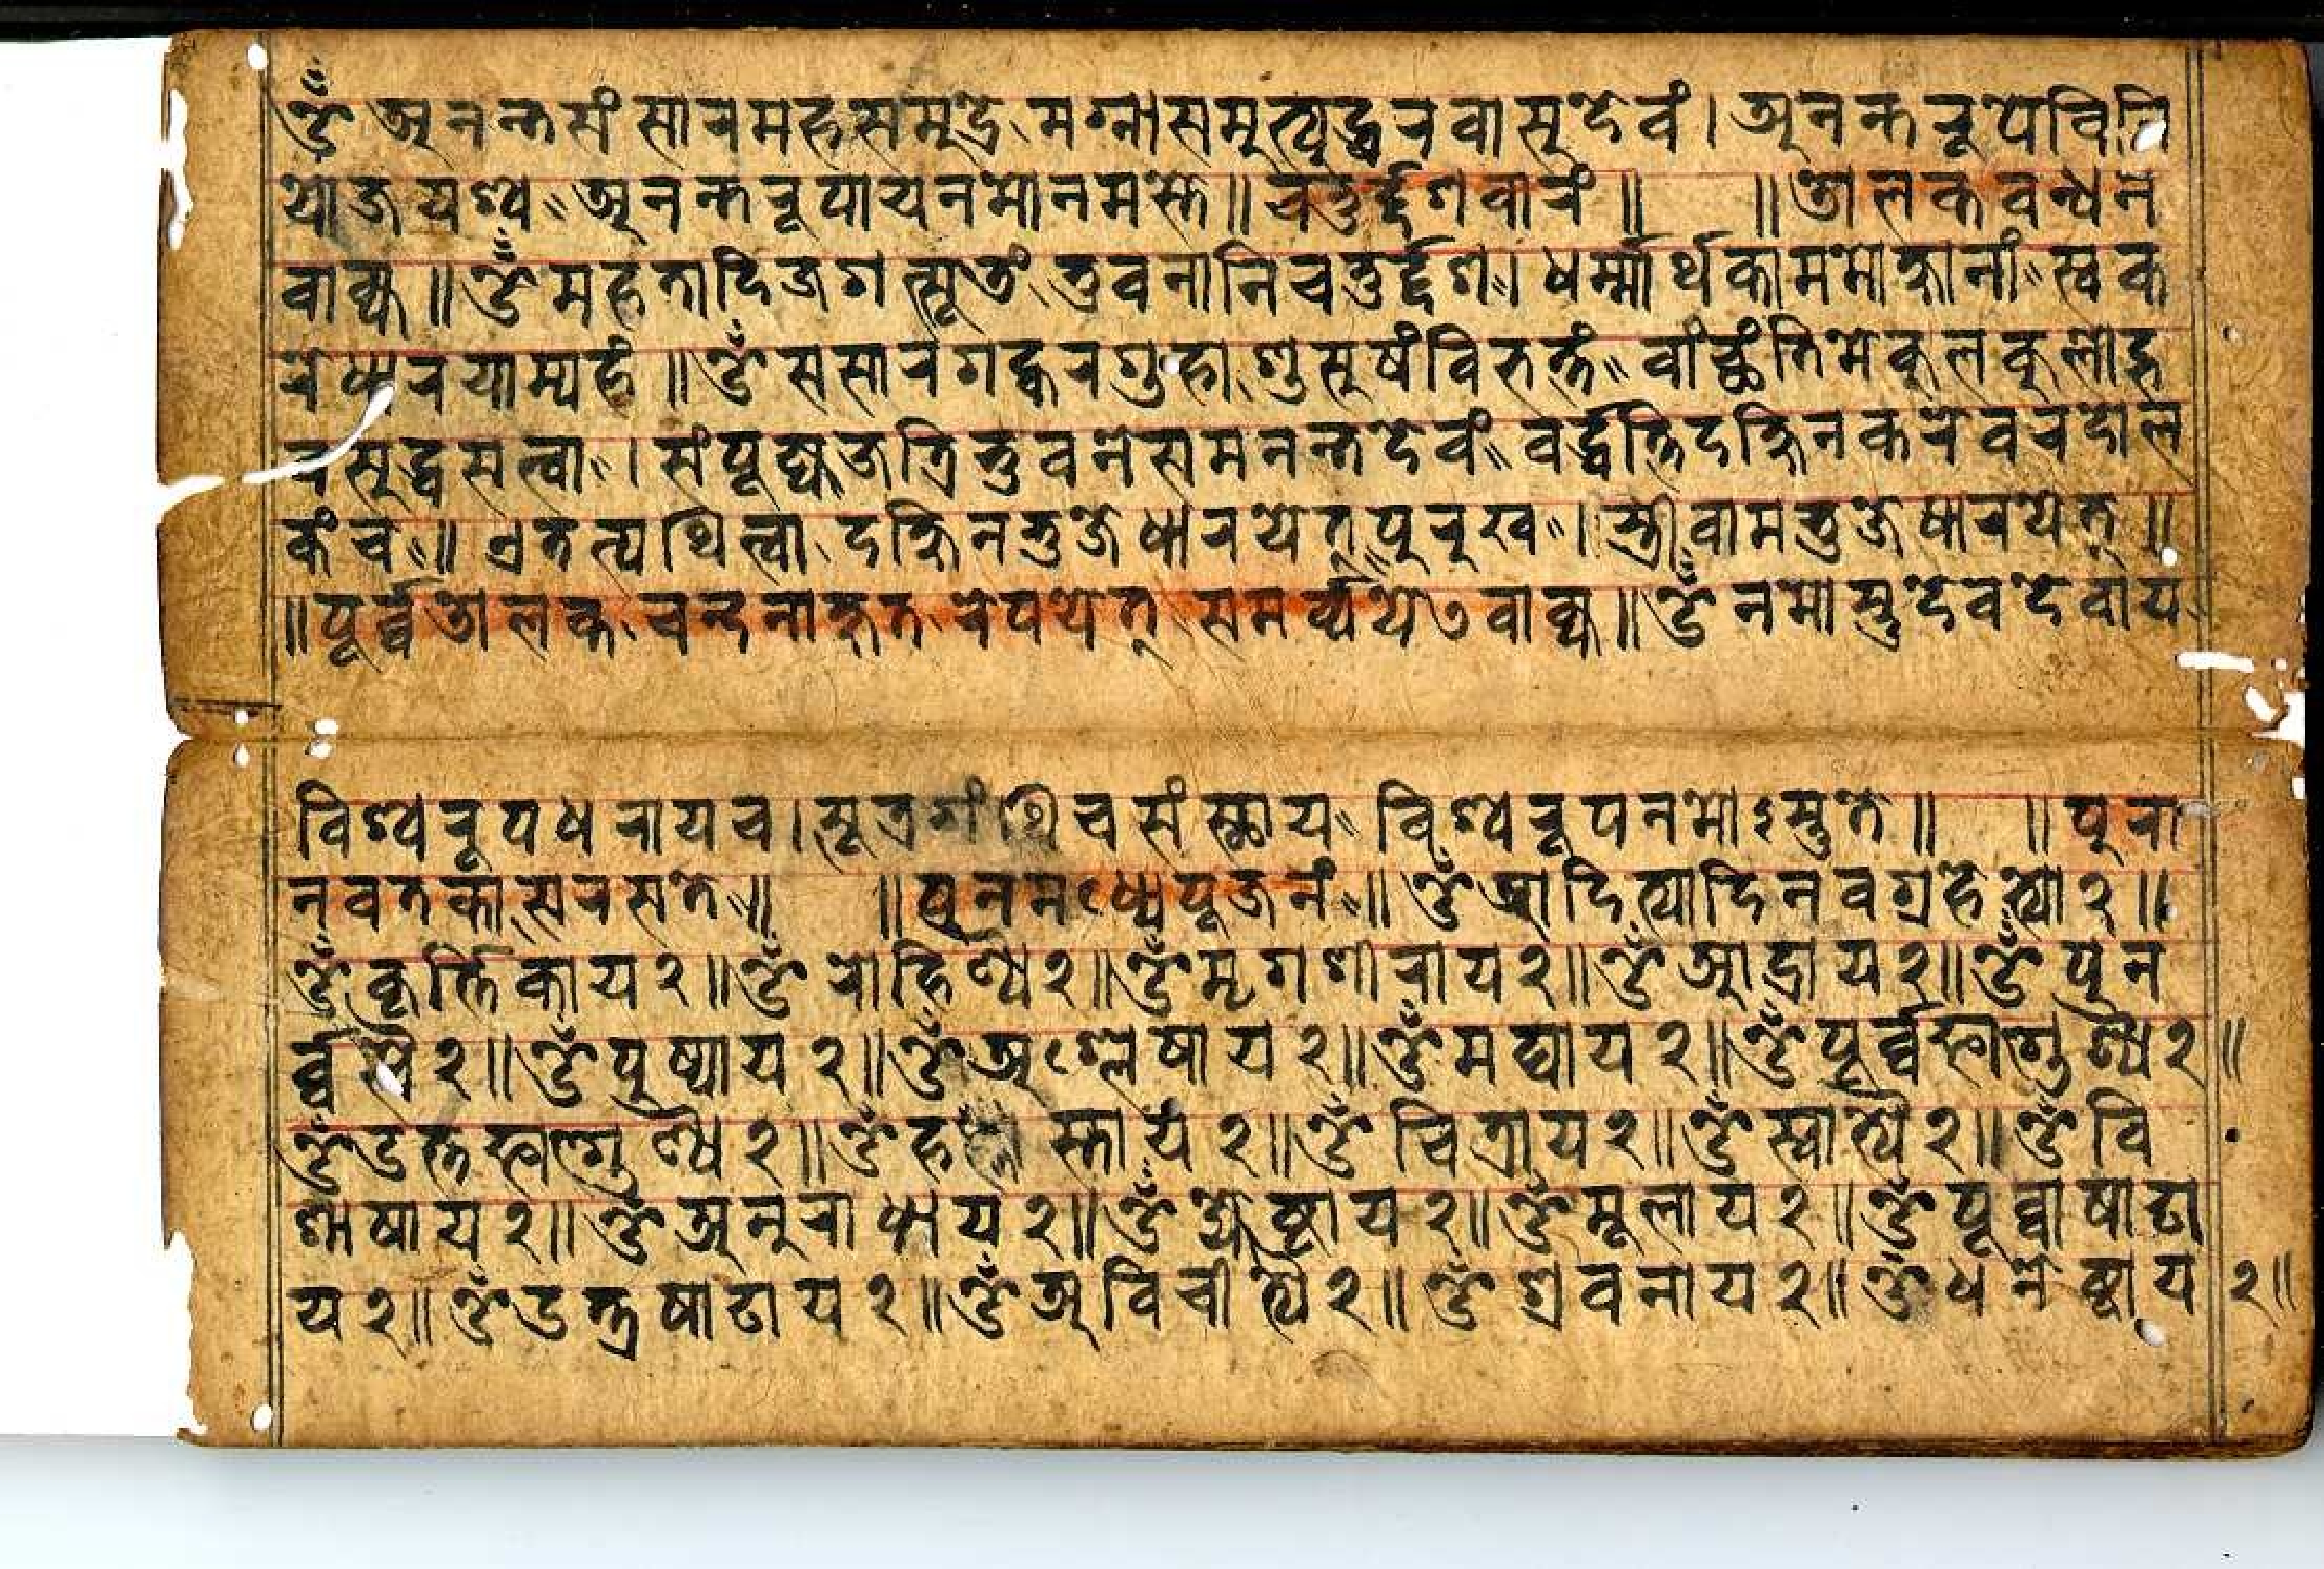 ॐ अनन्तसंसारमहसमूद्रे मग्नासमूत्यूद्धरवासूदेवं। अनन्तरूपेविनि
योजयश्व॥अनन्तरूपायनमोनमस्ते॥चतुर्द्दशवारं॥ ॥डालकवन्धन
वाक्य॥ॐमहतादिजगत्सूत्रं भुवनानिचतुर्द्दश॥। धर्म्मार्थकाममोक्षानां॥स्वक
रेधारयाम्यहं॥ॐ ससारगह्वरगुहा शुसूषंविरुत्तं॥वांच्छंतिमेकूलकूलोद्भ
रसूद्धसत्वा॥। संपूज्यजत्रिभुवनेसमनन्तदेवं॥वर्द्ध्वत्तिदक्षिनकरेवरदोल
कंच॥॥ एतत्पथित्वा दक्षिनभुजेधारयेत्॥पूरूख॥। स्त्रीवामभुजेधारयेत्॥
॥पूर्व्वडालक चन्दनाक्षत रेपयेत् समर्प्यये७वाक्य॥ॐ नमोस्तुदेवदेवाय
विश्वरूपधरायच।सूत्रगंथिचसंस्छाय॥विश्वरूपनमोऽस्तुते॥ ॥पूरा
नवतका सरसते॥॥ ॥पूनमध्यपूजनं॥॥ॐआदित्यादिनवग्रहेत्यो२॥
ॐकृर्त्तिकाय२॥ॐ रोहिण्यै२॥ॐमृगशीराय२॥ॐआद्राय२॥ॐ पून
र्व्वसवै२॥ॐपूष्याय२॥ॐअश्लेषाय२॥ॐमघाय२॥ॐपूर्व्वफाल्गुण्यै२॥
ॐउत्तफाल्गुण्यै२॥ॐहस्ताय२॥ॐ चित्राय२॥ॐस्वात्यै२॥ॐवि
शाषाय२॥ॐअनूराधाय२॥ॐज्येष्टाय२॥ॐमूलाय२॥ॐपूर्व्वाषाढा
य२॥ॐउत्त्रषाढाय२॥ॐअविचीत्यै२॥ॐश्रवनाय२॥ॐधनेष्टाय२॥